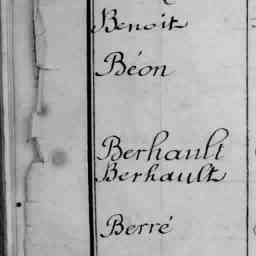 Benoit
Béon
Berhault
Berhault
Berré